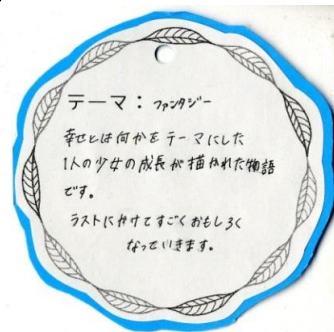 テーマ：ファンタジー
幸せとは何かをテーマにした
1人の少女の成長が描かれた物語
です。
ラストにかけてすごくおもしろく
なっていきます。